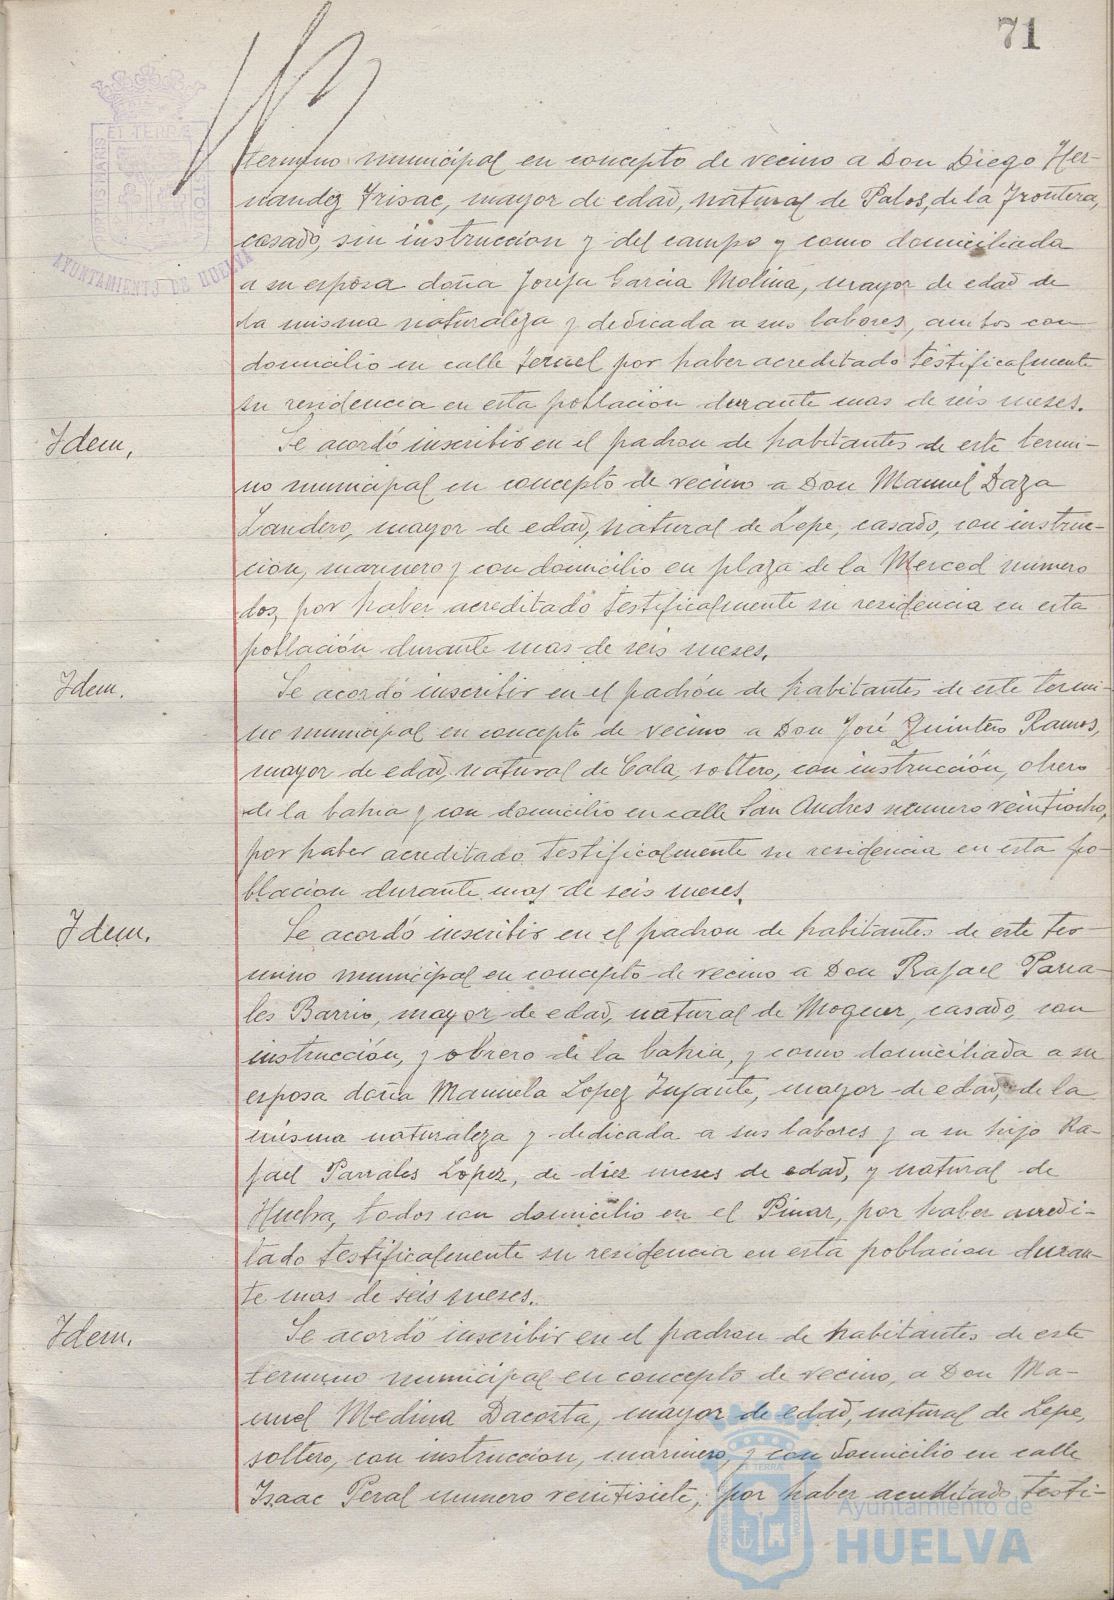 71
termino municipal en concepto de vecino a Don Diego Her-
nandez Frisac, mayor de edad, natural de Palos, de la Frontera,
casado, sin instruccion y del campo y como domiciliada
a su esposa doña Josefa Garcia Molina, mayor de edad de
la misma naturaleza y dedicada a sus labores, ambos con
domicilio en calle Teruel por haber acreditado testificalmente
su residencia en esta poblacion durante mas de seis meses.
Idem,
Se acordó inscribir en el padron de habitantes de este termi-
no municipal en concepto de vecino a Don Manuel Daza
Landero, mayor de edad, natural de Lepe, casado, con instruc-
cion, marinero y con domicilio en plaza de la Merced número
dos, por haber acreditado testificalmente su residencia en esta
población durante mas de seis meses.
Idem.
Se acordó inscribir en el padrón de habitantes de este termi-
no municipal en concepto de vecino a Don José Quintero Ramos,
mayor de edad, natural de Cala, soltero, con instrucción, obrero
de la bahia y con domicilio en calle San Andres numero veintiocho,
por haber acreditado testificalmente su residencia en esta po-
blacion durante mas de seis meses.
Idem.
Se acordó inscribir en el padron de habitantes de este ter-
mino municipal en concepto de vecino a Don Rafael Parra-
les Barrio, mayor de edad, natural de Moguer, casado, con
instrucción, y obrero de la bahia, y como domiciliada a su
esposa doña Manuela Lopez Infante, mayor de edad, de la
misma naturaleza y dedicada a sus labores y a su hijo Ra-
fael Parrales Lopez, de diez meses de edad, y natural de
Huelva, todos con domicilio en el Pinar, por haber acredi-
tado testificalmente su residencia en esta poblacion duran-
te mas de seis meses.
Idem.
Se acordó inscribir en el padron de habitantes de este
termino municipal en concepto de vecino, a Don Ma-
nuel Medina Dacosta, mayor de edad, natural de Lepe,
soltero, con instruccion, marinero, y con domicilio en calle
Isaac Peral numero veintisiete, por haber acreditado testi-
ET TERRÆ
AYUNTAMIENTO DE HUELVA
Ayuntamiento de
HUELVA